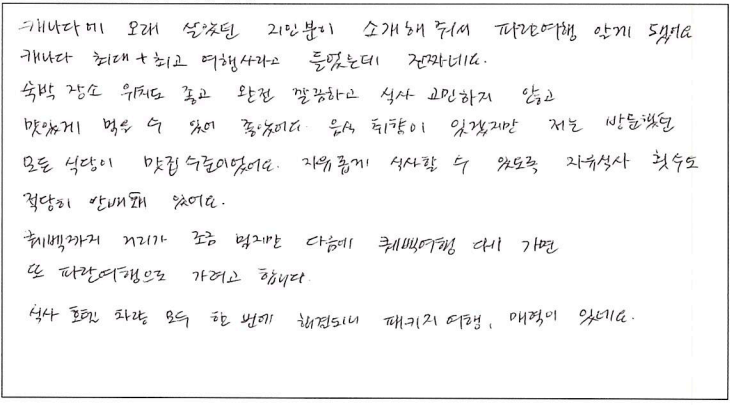 캐나다에 오래 살았던 지인분이 소개해 줘서 파란여행 알게 됐어요
캐나다 최대+최고 여행사라고 들었는데 진짜네요.
숙박 장소 위치도 좋고 완전 깔끔하고 식사 고민하지 않고
맛있게 먹을 수 있어 좋았어요. 음식 취향이 있겠지만 저는 방문했던
모든 식당이 맛집 수준이었어요. 자유롭게 식사할 수 있도록 자유식사 횟수도
적당히 안배돼 있어요.
퀘벡까지 거리가 조금 멀지만 다음에 퀘벡여행 다시 가면
또 파란여행으로 가려고 합니다.
식사 호텔 차량 모두 한 번에 해결되니 패키지 여행, 매력이 있네요.